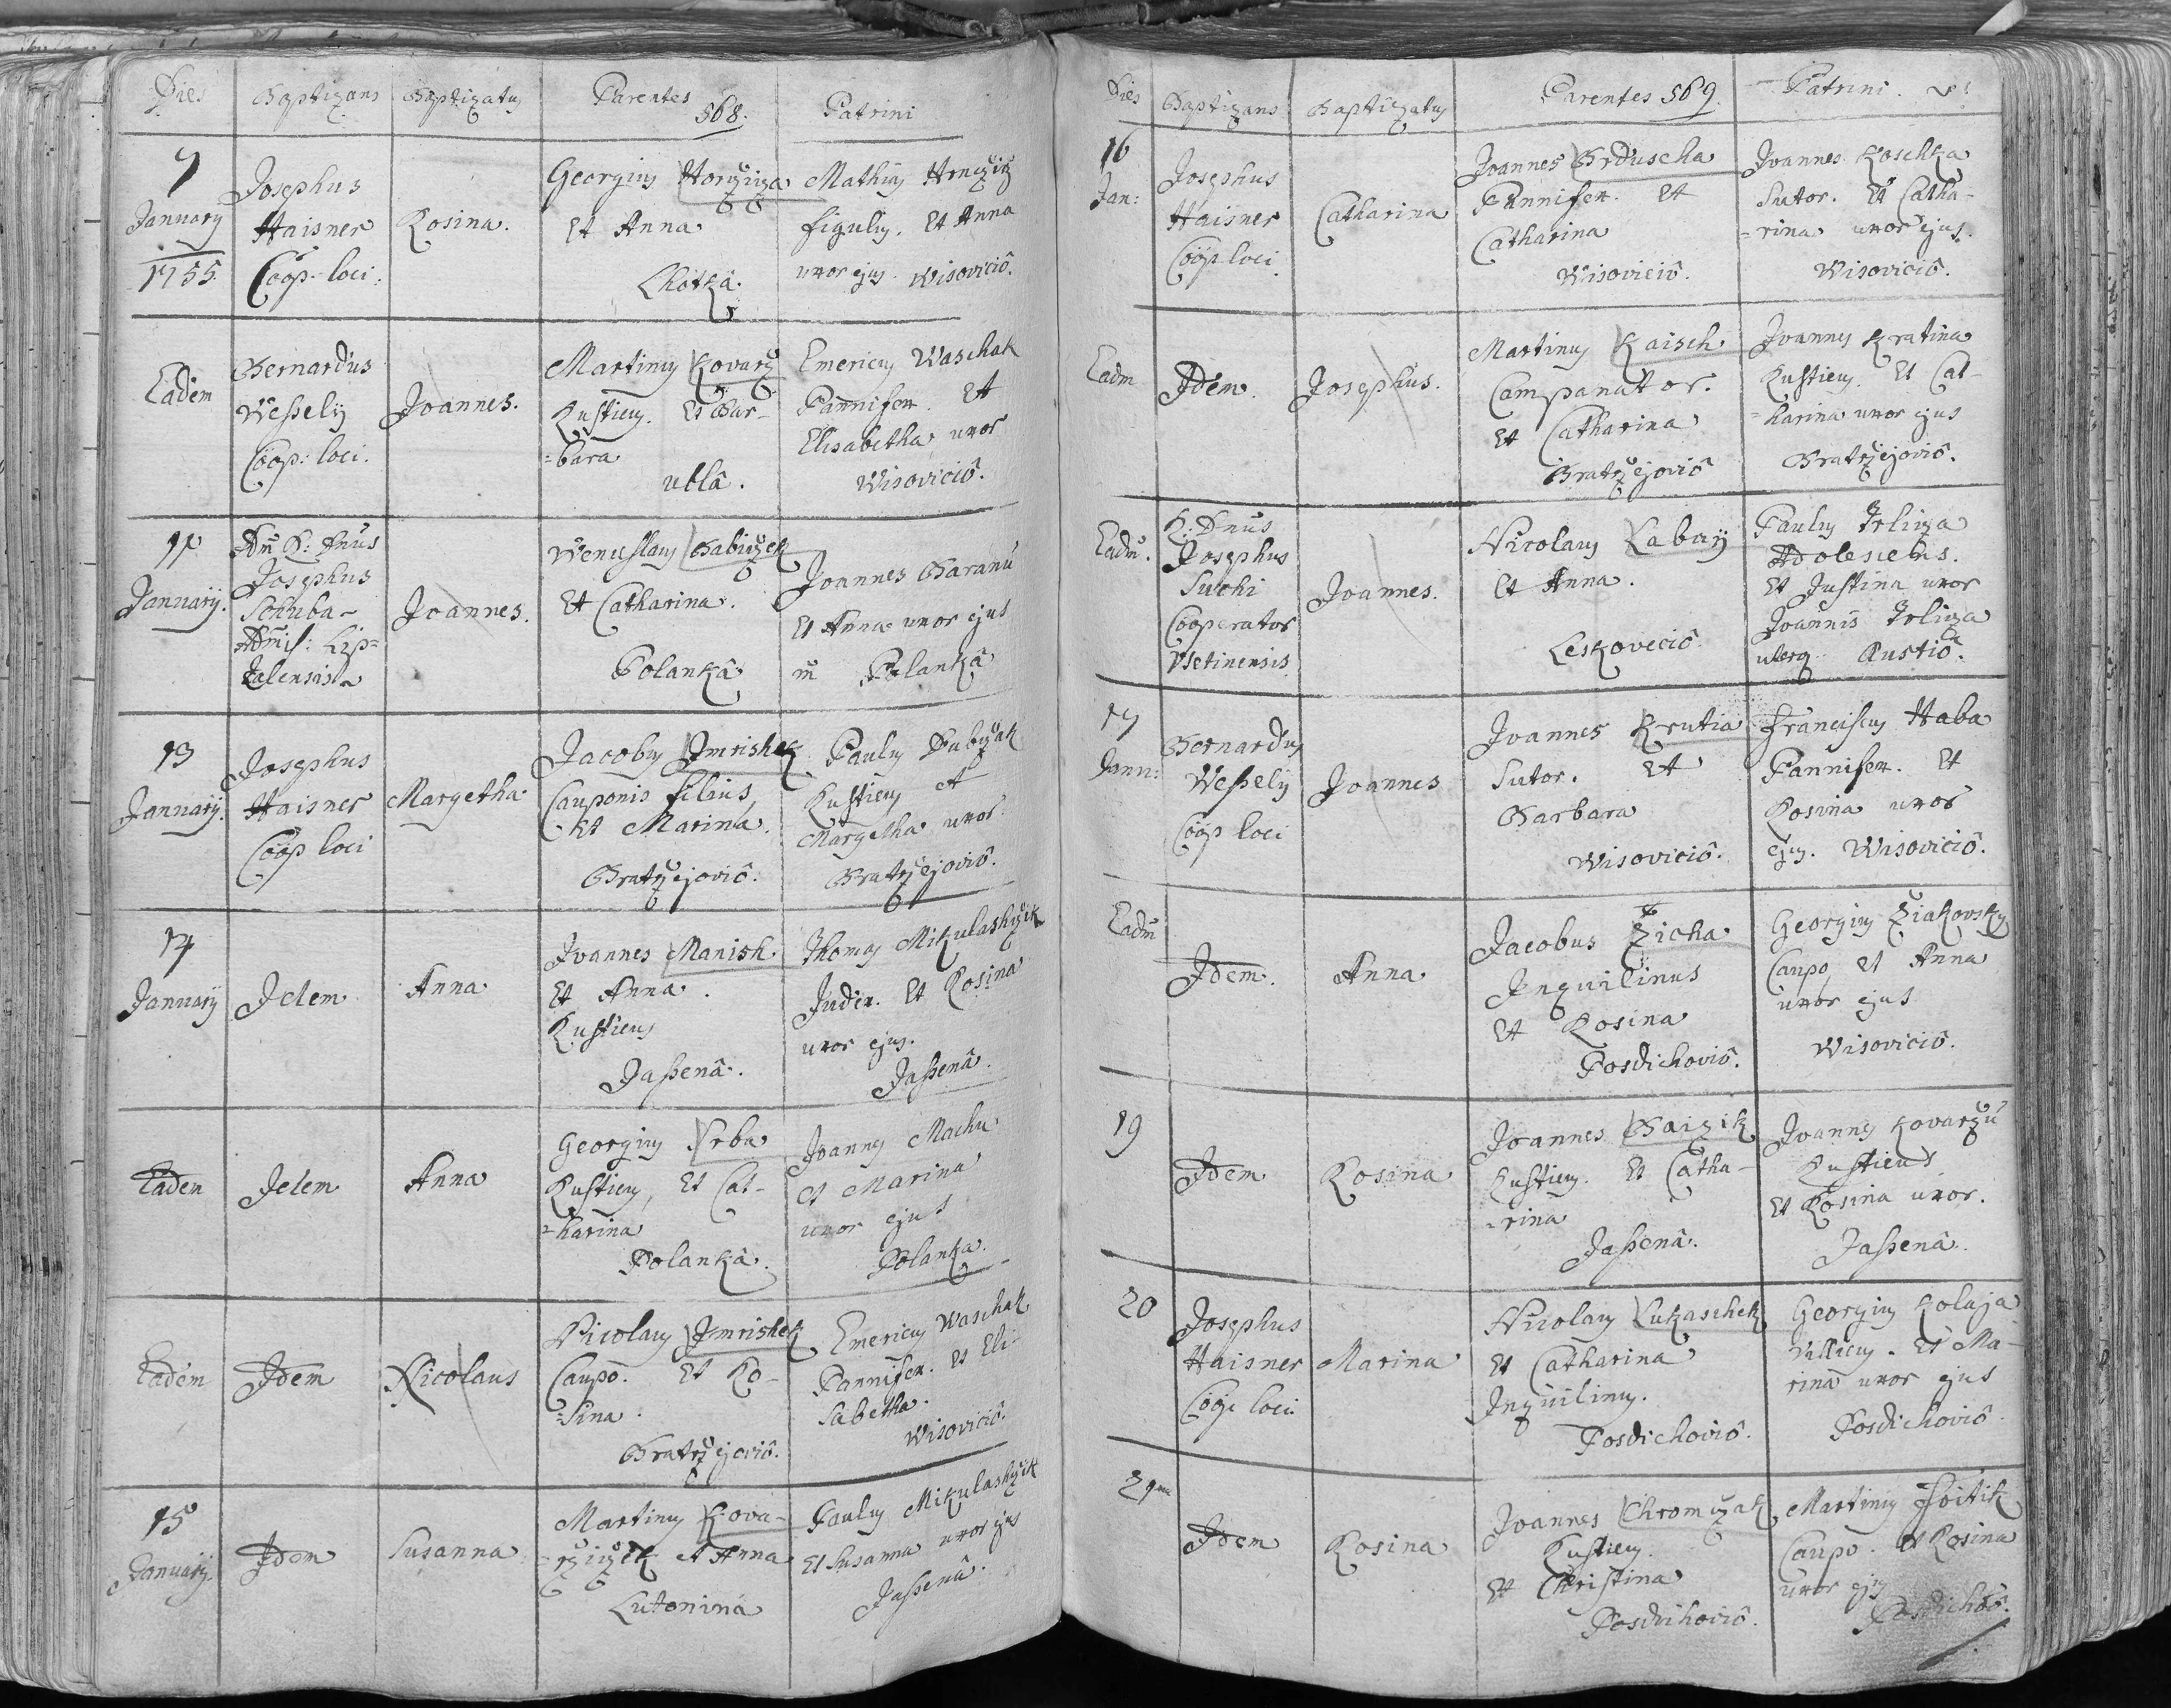 Dies Baptizans Baptizatus Parentes 568. Patrini
7 January 1755.
Josephus
Haisner
Coop. loci.
Rosina.
Georgius Horziza
Et Anna
Lhotkâ.
Mathius
figulus. Et Anna
uxor ejus. Wisoviciô.
Eadem
Bernardus
Weßelÿ
Coop: loci.
Joannes.
Martinus Kovarz
Rusticus. Et Bar-
=bara
ublâ.
Emericus Waschak
Pannifex. Et
Elisabetha uxor
Wisoviciô.
11
Januarÿ.
Adm R: Dnus
Josephus
Schuba-
Joannes.
Wenceslaus Babiczek
Et Catharina.
Polankâ
Joannes Baranů
Et Anna uxor ejus
Polankâ
13
Januarÿ.
Josephus
Haisner
Coop loci
Margetha.
Jacobus Jmrishek
Cauponis filius,
Et Marina.
Bratrzejoviô.
Paulus
Rusticus et
Margetha uxor.
Bratrzejoviô.
14
Januarÿ
Idem
Anna
Joannes Manish
Et Anna.
Rusticus
Jaßenâ.
Thomas Mikulashczik
Judex. Et Rosina
uxor ejus.
Jaßenâ.
Eadem
Idem
Anna
Georgius Srba
Rusticus, Et Cat-
=harina
Polankâ.
Joannes Machu
Et Marina
uxor ejus
Polanka.
Eadem
Idem
Nicolaus
Nicolaus Jmrishek
Caupo. Et Ro-
=sina.
Bratrzejoviô.
Emericus Waschak
Pannifex. Et Eli-
sabetha.
Wisoviciô.
15
Januarÿ.
Idem
Susanna
Martinus Kova-
=rziczek et Anna
Lutonina
Paulus Mikulashczik
Et Susanna uxor ejus
Jaßenâ.
Dies Baptizans Baptizatus Parentes 569. Patrini.
16
Jan:
Josephus
Haisner
Coop loci.
Catharina
Joannes Brduscha
Pannifex. Et
Catharina
Wisoviciô.
Joannes Koschka
Sutor. Et Catha-
=rina uxor ejus.
Wisoviciô.
Eadm
Idem.
Josephus.
Martinus Kaisch
Campanator.
Et Catharina
Bratrzejoviô
Joannes Kratina
Rusticus. Et Cat-
=harina uxor ejus
Bratrzejoviô.
Eadm.
R: Dnus
Josephus
Suchi
Cooperator
Vsetinensis.
Joannes.
Nicolaus Labaÿ
Et Anna.
Leskoveciô.
Paulus
Adolescens.
Et Justina uxor
Joannis
uterq.
17
Janu:
Bernardus
Weßelÿ
Coop loci
Joannes
Joannes Krutia
Sutor. Et
Barbara
Wisoviciô.
Franciscus Haba
Pannifex. Et
Rosina uxor
ejus. Wisoviciô.
Eadm
Idem.
Anna
Jacobus Zicha
Inquilinus
Et Rosina
Posdichoviô.
Georgius Ziakovskÿ
Caupo et Anna
uxor ejus
Wisoviciô.
19
Idem
Rosina
Joannes Baizik
Rusticus. Et Catha-
=rina
Jaßenâ.
Joannes Kovarzů
Rusticus
Et Rosina uxor.
Jaßenâ.
20
Josephus
Haisner
Coop loci.
Marina
Nicolaus Lukaschek
Et Catharina
Inquilinus.
Posdichoviô.
Georgius Kolaja
Villicus. Et Ma-
rina uxor ejus
Posdichoviô.
21ma
Idem
Rosina
Joannes Chromczak
Rusticus.
Et Christina
Posdichoviô.
Martinus
Caupo. et Rosina
uxor ejus